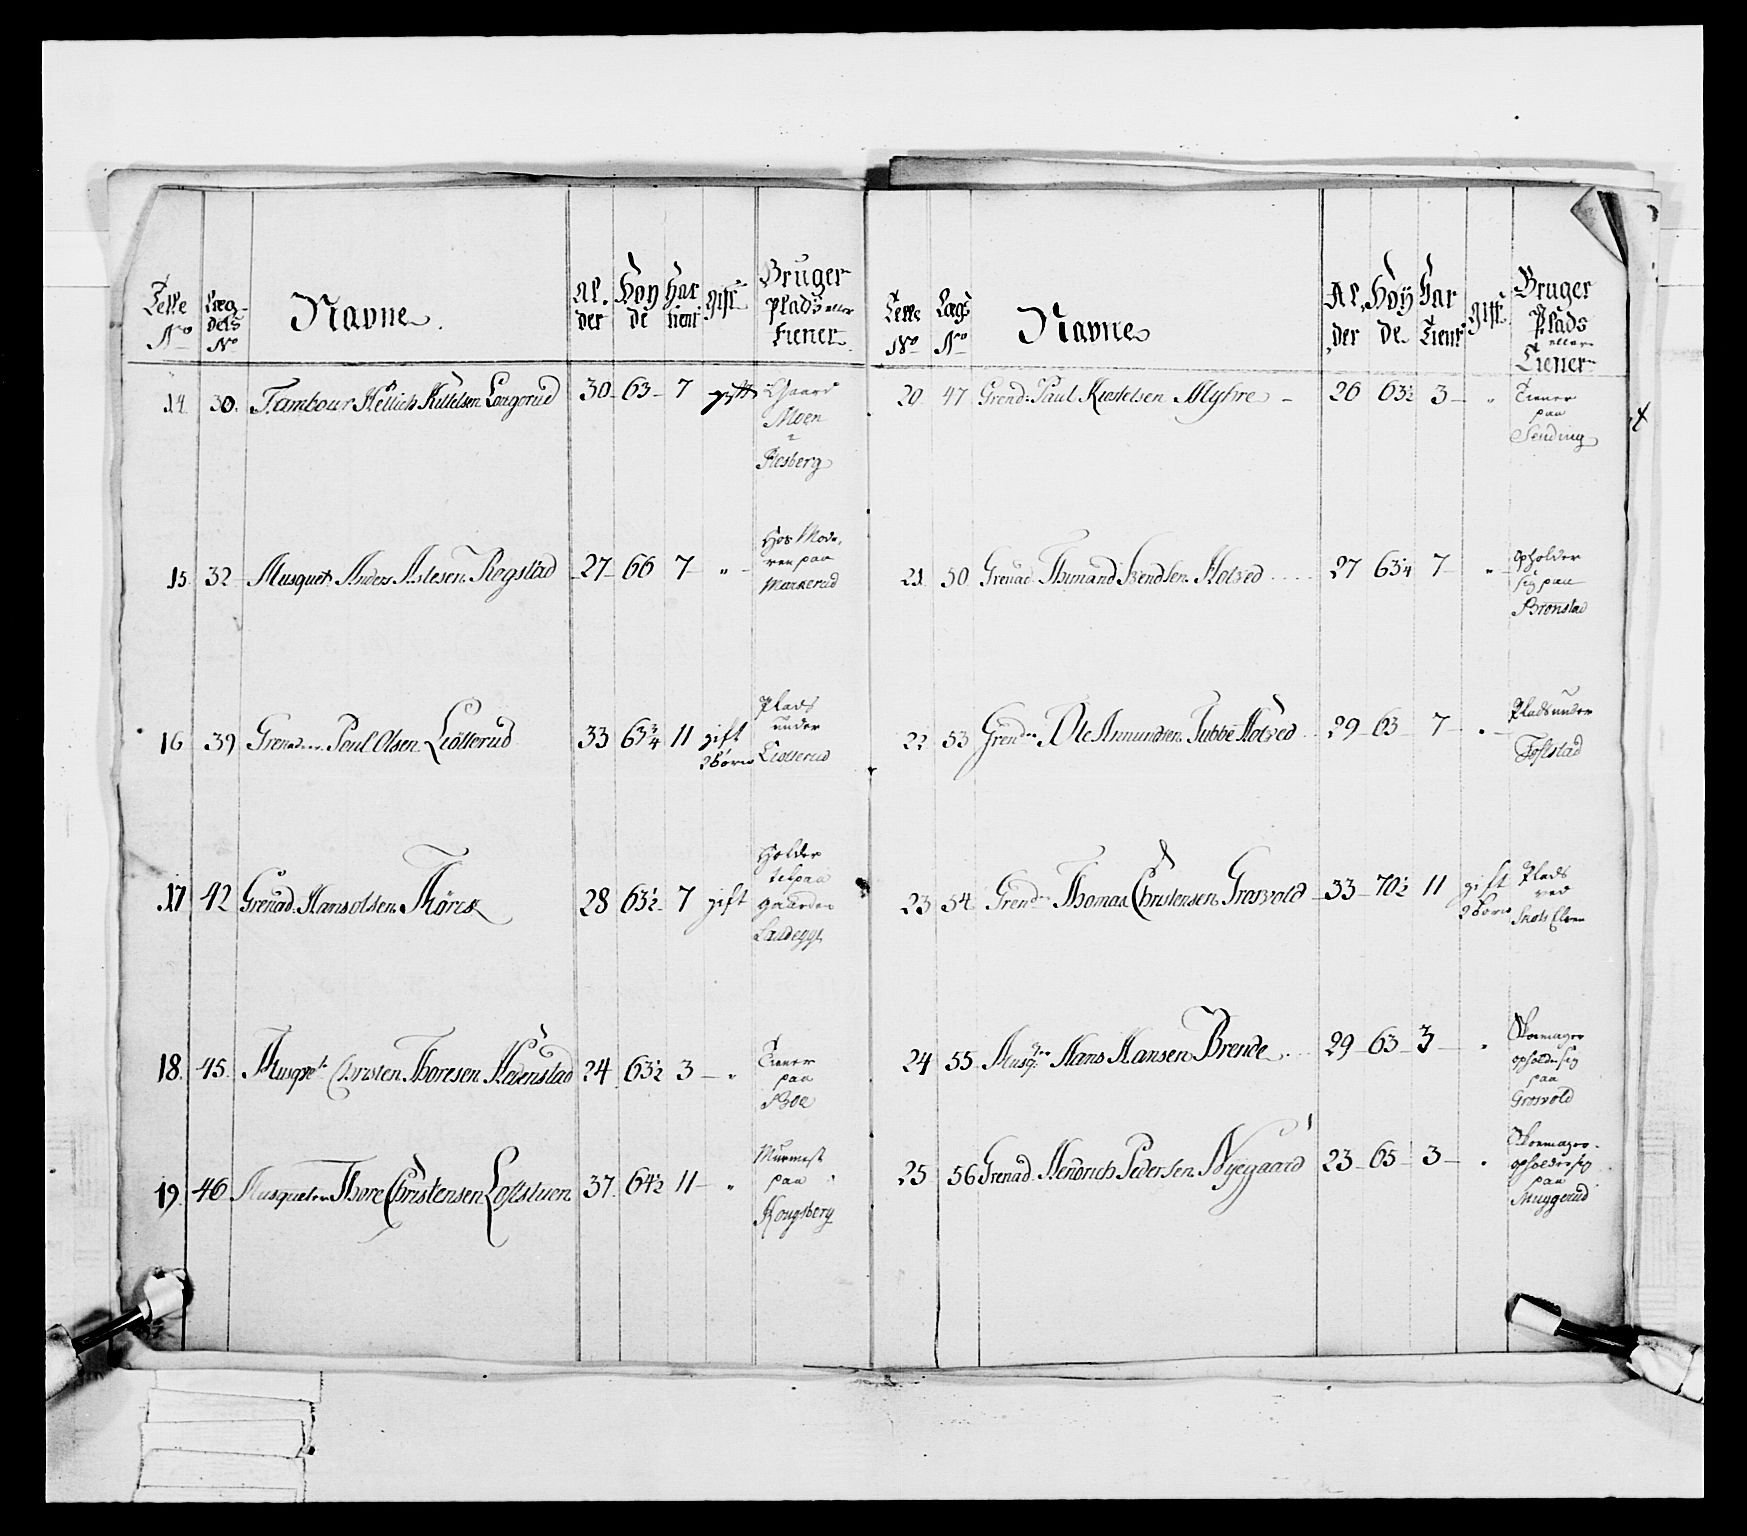 Telle No | Lægdets No | Navne. | Alder | Høyde | Har tient | gift | Bruger Plads eller tiener
14 | 30. | Tambour Kittelsen | 30 | 63 | 7 | gift | Moen i Flesberg
15 | 32 | Musquet Anders Aslesen Rogstad | 27 | 66 | 7 | " | Hos Moderen paa
16 | 39 | Poul Olsen Liøtterud | 33 | 63 3/4 | 11 | gift 2 børn | Plads under Liøtterud
17 | 42 | Grenad. Hans olsen | 28 | 63 1/2 | 7 | gift | Holder til paa gaarden
18. | 45. | Christen Thoresen Hedenstad | 24 | 63 1/2 | 3 | " | Tiener paa Boe
19. | 46 | Musqueteer Thore Christensen Loftstuen | 37 | 64 1/2 | 11 | " | paa Kongsberg
Telle No | Lægs No | Navne | Alder | Høyde | Har Tient | gift | Bruger Plads eller Tiener
20 | 47 | Grend: Paul Myhre | 26 | 63 1/2 | 3 | " | Tiener paa Sending
21. | 50 | Grenad Svendsen Hotved | 27 | 63 1/4 | 7 | " | opholder sig paa Brønstad
22 | 53 | Ole Amundsen Hotved | 29 | 63 | 7 | " | Plads under Toftstad
23 | 54 | Thomas Christensen Grosvold | 33 | 70 1/2 | 11 | gift 2 børn | Plads ved
24 | 55 | Hans Hansen Brende | 29 | 63 | 3 | " | Skomager opholder sig paa Grosvold
25 | 56 | Grenad. Hendrich Pedersen Nyegaard | 23 | 65 | 3 | " | Skomager opholder sig paa Muggerud